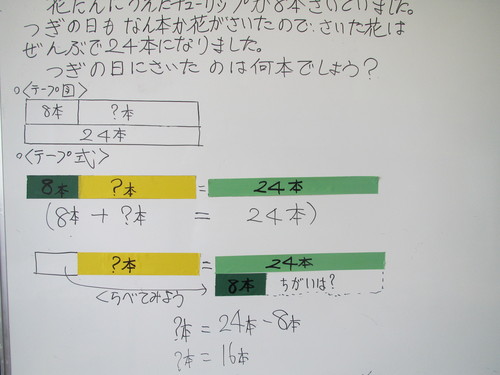 花だんにうえたチューリップが8本さいていました。
つぎの日もなん本か花がさいたので、さいた花は
ぜんぶで24本になりました。
つぎの日にさいたのは何本でしょう?
○<テープ図>
8本 ?本
24本
○<テープ式>
8本 ?本 = 24本
(8本 + ?本 = 24本)
?本 = 24本
8本 ちがいは?
くらべてみよう
?本 = 24本-8本
?本 = 16本